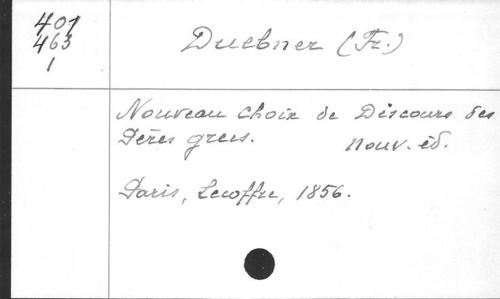 401
463
1
Duebner (Fr.)
Nouveau choix de Discours des
Pères grecs. nouv. éd.
Paris, Lecoffre, 1856.